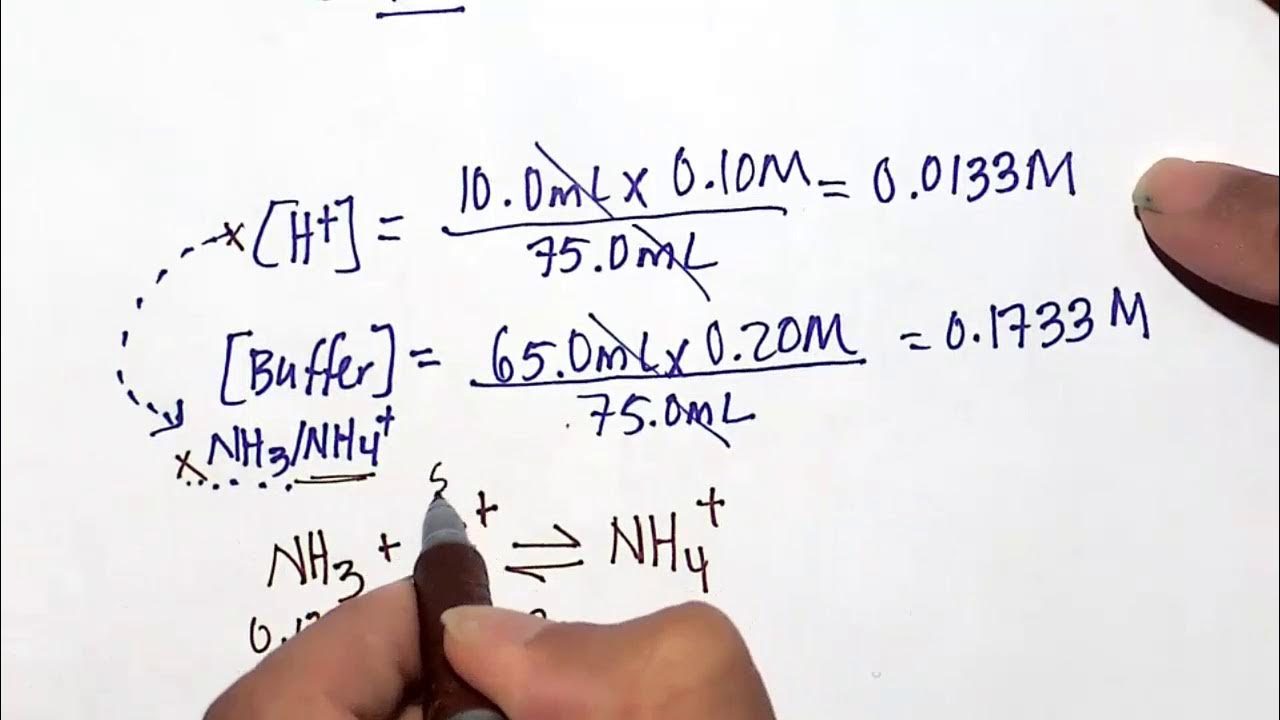 [H+] = 10.0mL x 0.10M / 75.0mL = 0.0133M
[Buffer] = 65.0mL x 0.20M / 75.0mL = 0.1733 M
NH3/NH4+
NH3 + + ⇌ NH4+